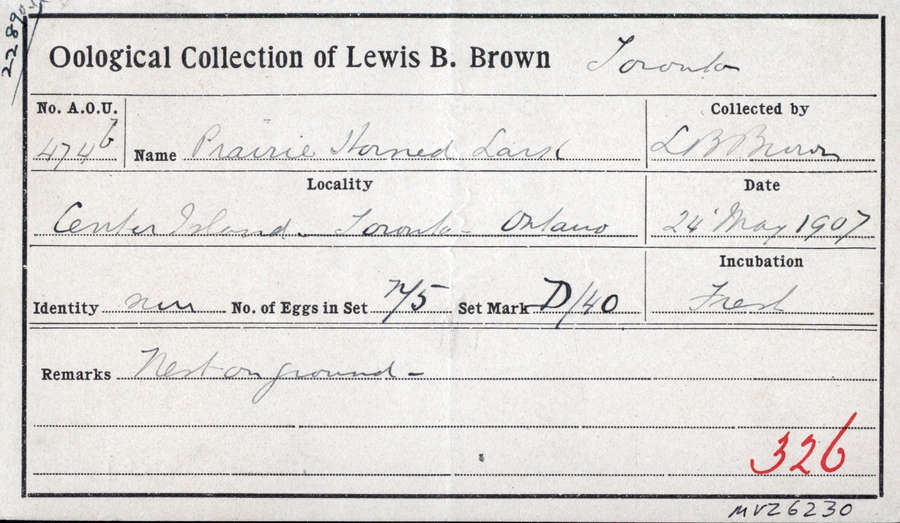 Oological Collection of Lewis B. Brown Toronto
No. A.O.U. Collected by
474b Name Prairie Horned Lark L B Brown
Locality Date
Center Island - Toronto - Ontario 24 May 1907
Incubation
Identity No. of Eggs in Set n/5 Set Mark D/40 Fresh
Remarks Nest on ground -
326
MVZ 6230